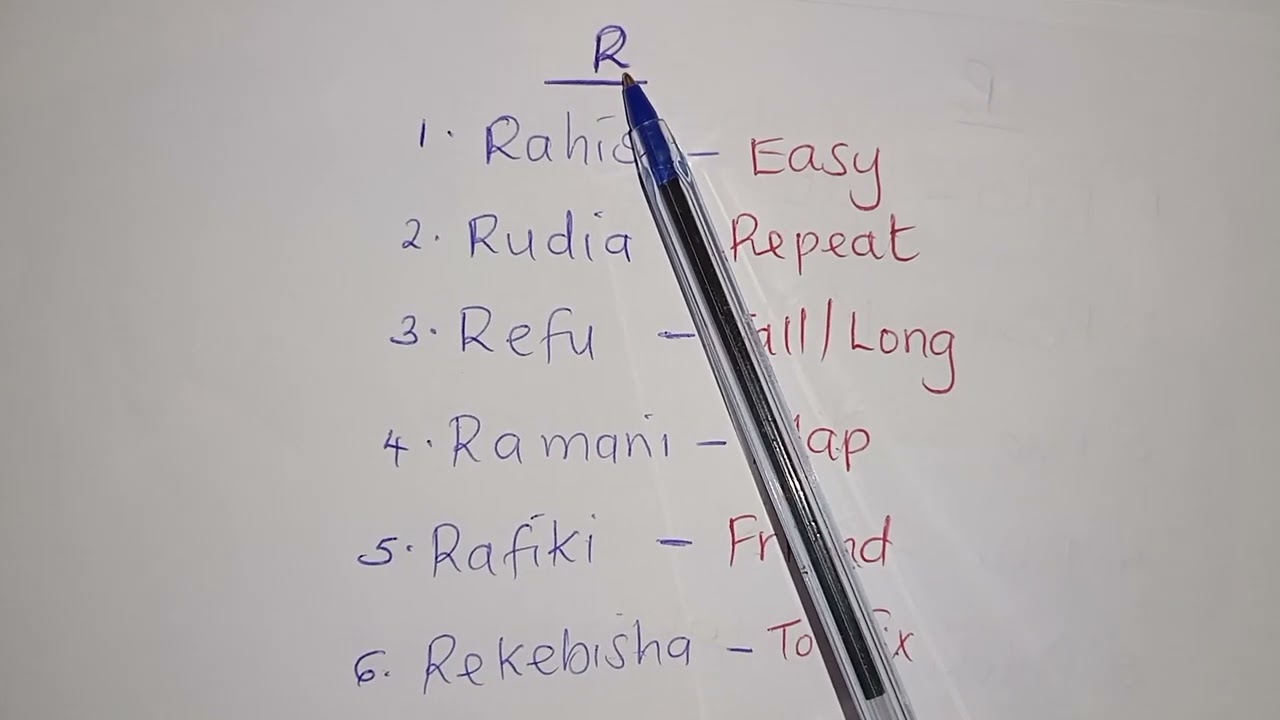 R
1. Rahisi - Easy
2. Rudia Repeat
3. Refu - Tall/Long
4. Ramani - Map
5. Rafiki - Friend
6. Rekebisha - To fix